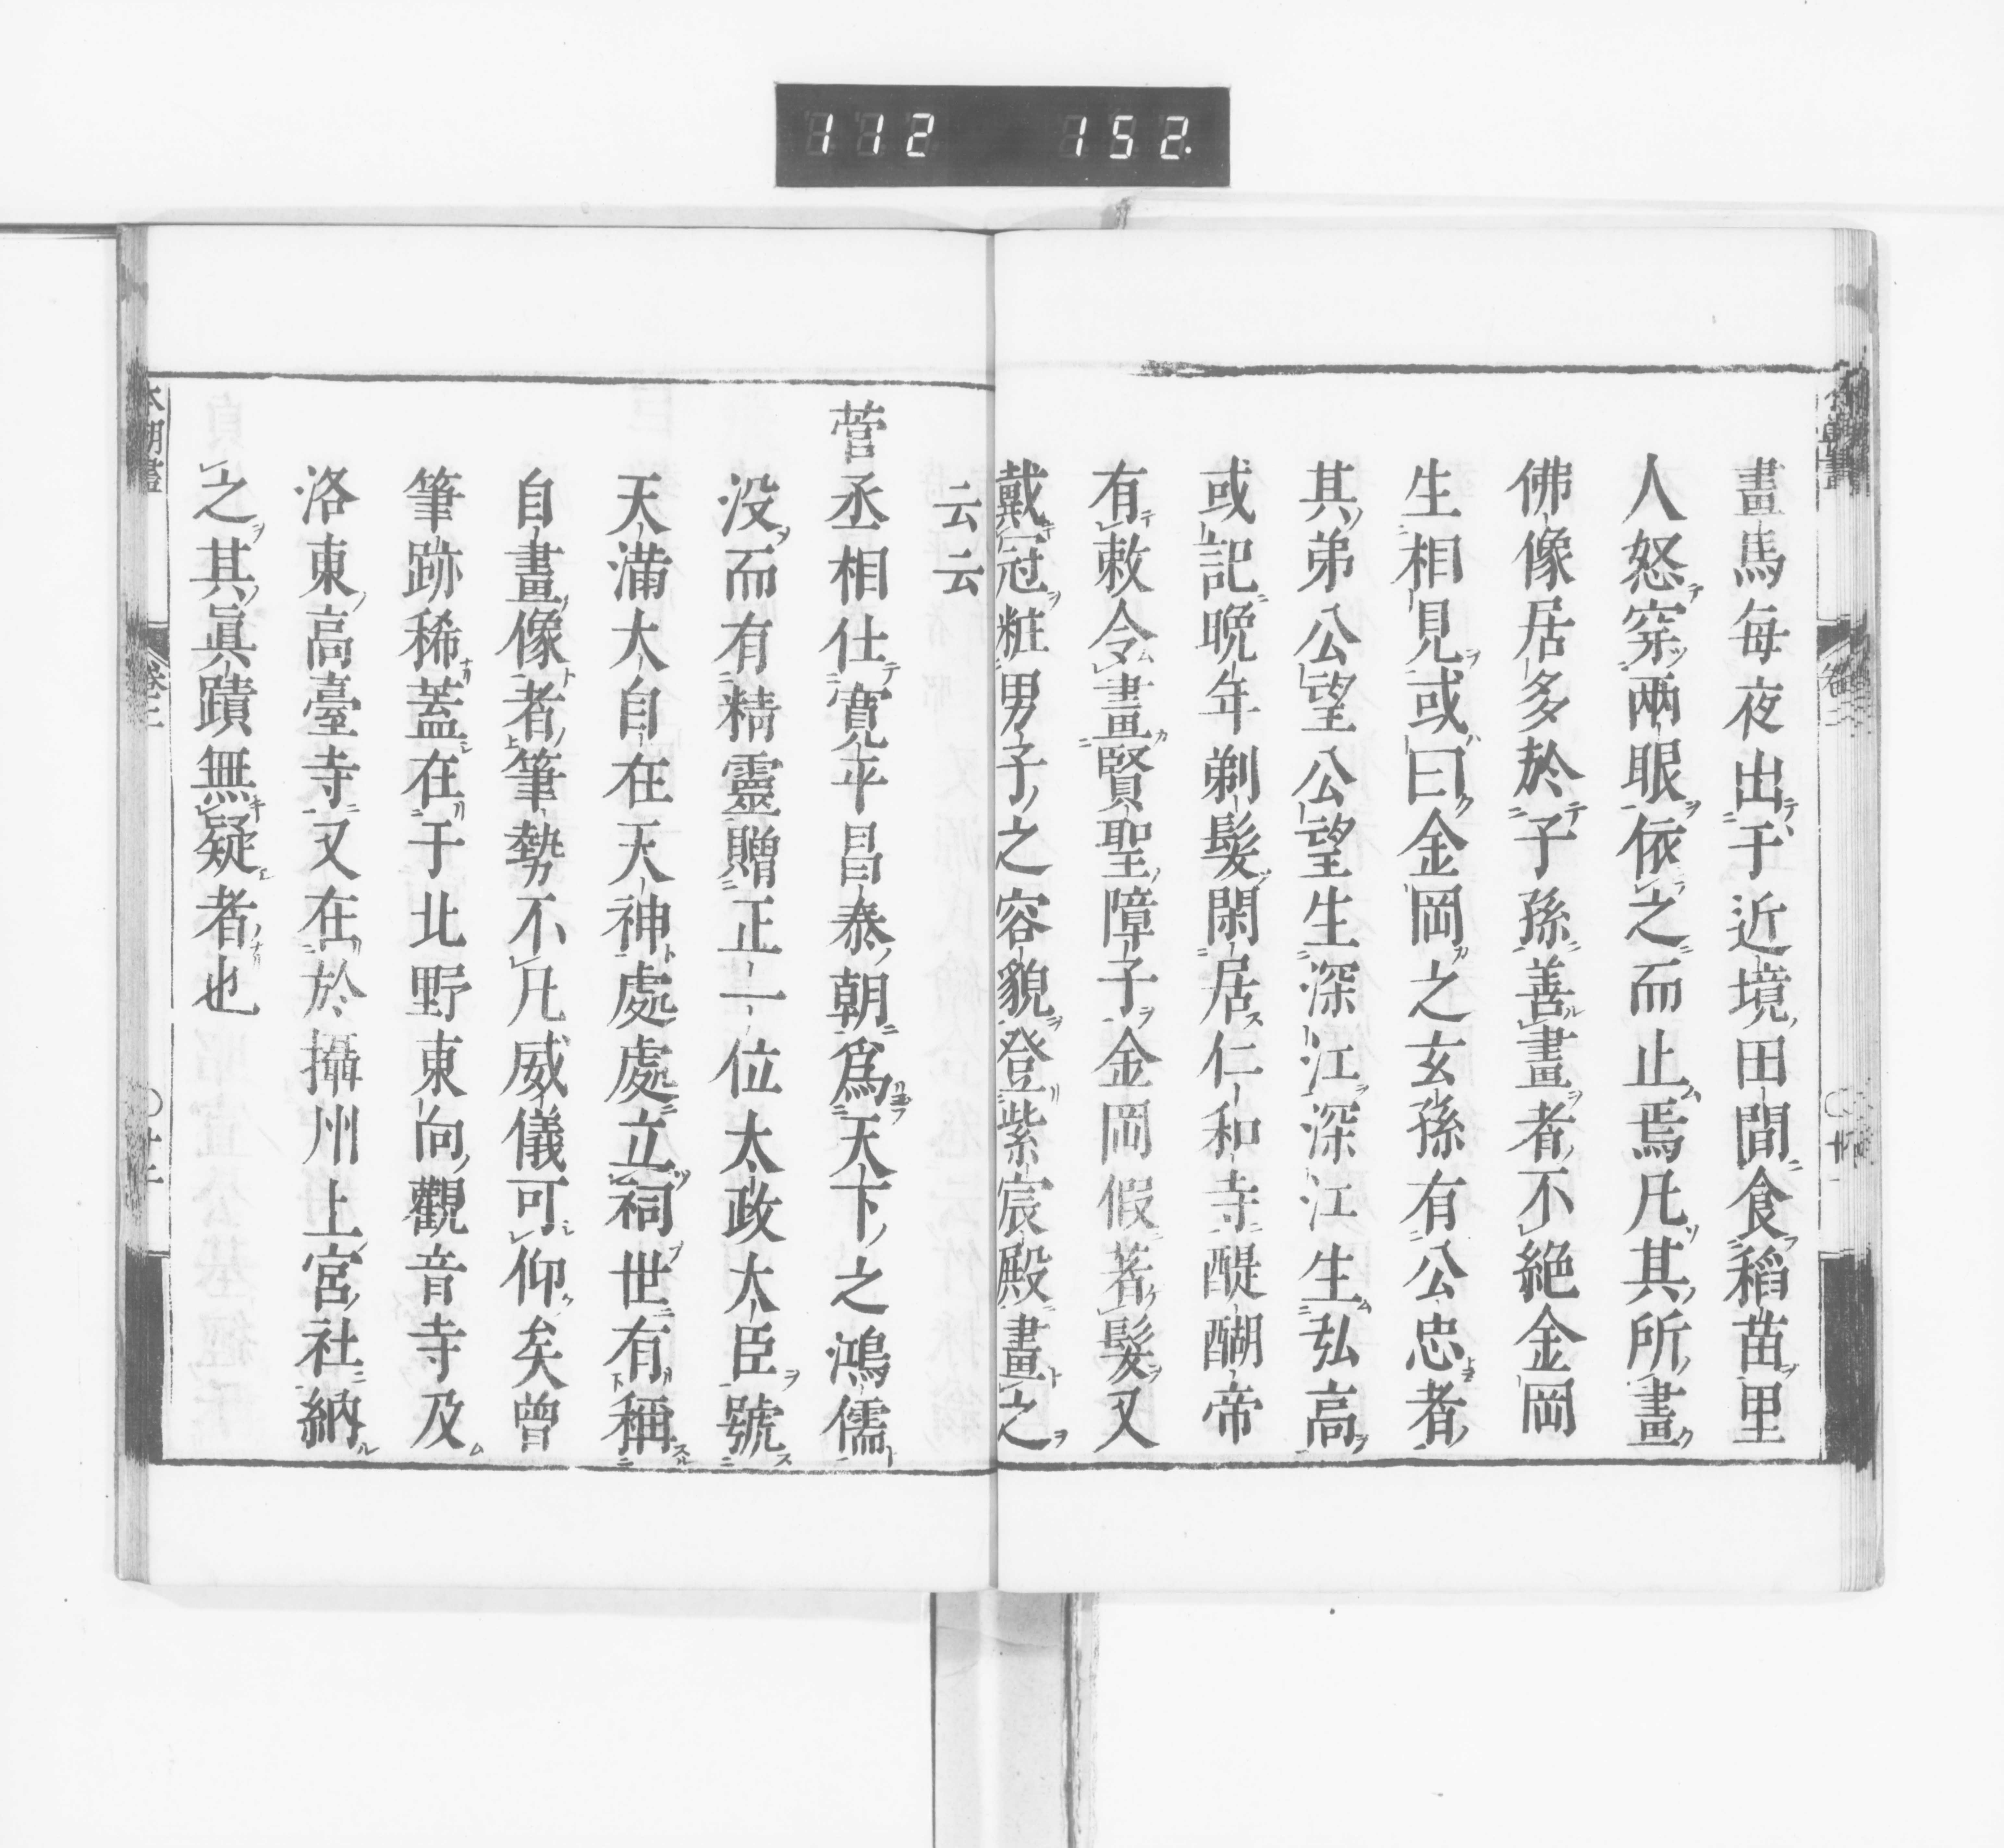 112 152.
畫馬每夜出于近境田間食稻苗里
人怒穿兩眼依之而止焉凡其所畫
佛像居多於子孫善畫者不絕金岡
生相見或曰金岡之玄孫有公忠者
其弟公望公望生深江深江生弘高
或記晩年剃髮閑居仁和寺醍醐帝
有敕令畫賢聖障子金岡假著髮又
戴冠粧男子之容貌登紫宸殿畫之
云云
菅丞相仕寬平昌泰朝爲天下之鴻儒
没而有精靈贈正一位太政大臣號
天滿大自在天神處處立祠世有稱
自畫像者筆勢不凡威儀可仰矣曾
筆跡稀蓋在于北野東向觀音寺及
洛東高臺寺又在於攝州上宮社納
之其眞蹟無疑者也
本朝畫 卷三